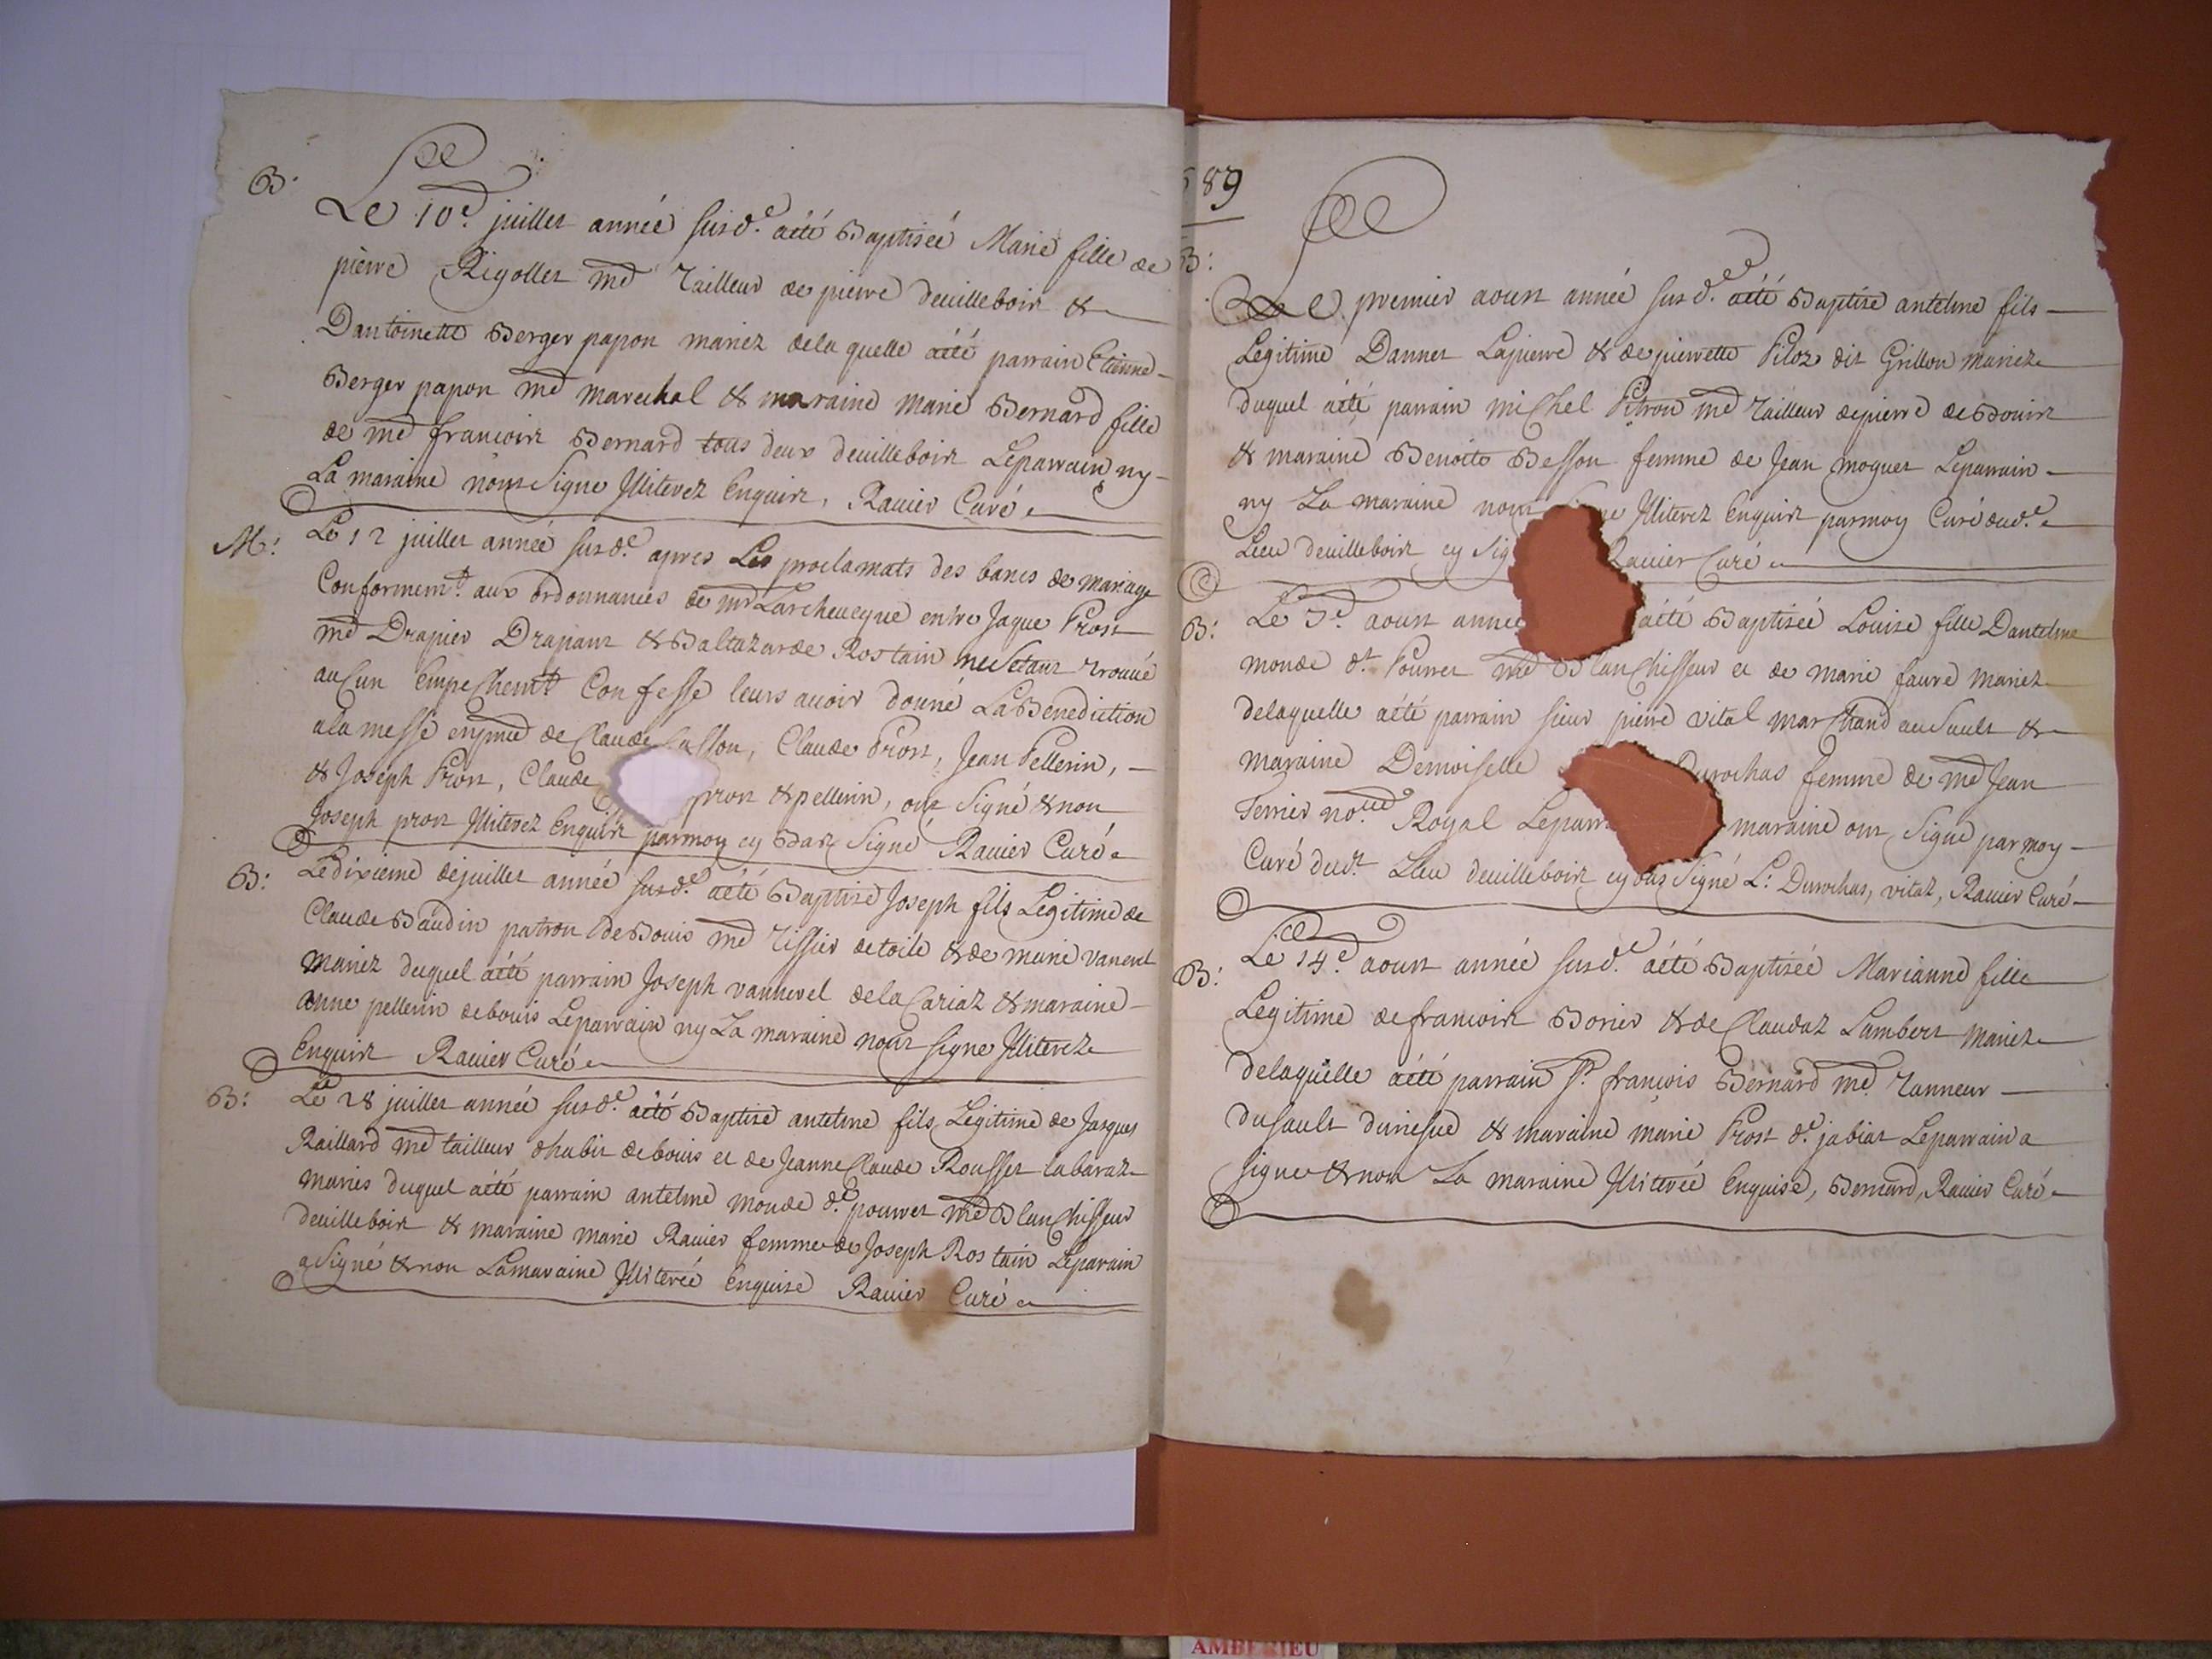 B.
Le 10e. juillet année susd.e aété Baptiseé Marie fille de
pierre Rigollet me Tailleur de pierre deuilleboix &
Dantoinette Berger papon mariez dela quelle aété parrain Etienne
Berger papon me marechal & maraine marie Bernard fille
de me francoix Bernard tous deux deuilleboix Leparrain ny
La maraine nont Signe Illiterez Enquix, Rauier Curé.
M:
Le 12 juillet année susd.e apres Les proclamats des bancs de mariage
Conformem.t aux ordonnances de mr Larcheueque entre Jaque Prost
me Drapier Drapant & Baltazarde Rostain ne Setant trouué
auCun EmpeChemt Confesse leurs auoir donné La Benediction
ala messe de Claude Claude Prost, Jean Pellerin,
& Joseph Prost, Claude prost & pellerin, ont Signé & non
Joseph prost Illiterez Enquix parmoy cy bas Signé Rauier Curé
B:
Ledixieme dejuillet année susd.e aété Baptise Joseph fils Legitime de
Claude Baudin patron de Bouis me Tissier detoile & de marie vanenel
mariez duquel aété parrain Joseph vannevel dela Cariaz & maraine
anne pellerin debouis Leparrain ny La maraine nont signe Illiterez
Enquix Rauier Curé
B:
Le 28 juillet année susd.e aété Baptise antelme fils Legitime de Jacques
Raillard me tailleur dhabit debouis et de Jeanne Claude Rousset labaraz
mariés duquel aété parrain antelme monde d.t pourret me BlanChisseur
deuilleboix & maraine marie Rauier femme de Joseph Rostain Leparain
aSigné & non Lamaraine Illiterée Enquise Rauier Curé
89
B:
Le premier aoust année susd.e aété Baptise antelme fils
Legitime Dannet Lapierre & depierrette Piloz dit Grillon mariez
duquel aété parrain miChel Pitron me Tailleur depierre deBouix
& maraine Benoite Besson femme de Jean moguet Leparrain
ny La maraine nont Illiterez Enquix parmoy Curé dud.t
Lieu deuilleboix cy Sig Rauier Curé
B:
Le 3e. aoust anneé aété Baptiseé Louise fille Dantelme
monde d.t Pourret me BlanChisseur et de marie faure mariez
delaquelle aété parrain sieur pierre vital marChand au Sault &
maraine Demoiselle Durochas femme de me Jean
Terrier no.re Royal Leparr maraine ont Signé parmoy
Curé dud.t Lieu deuilleboix cy bas Signé L: Durochas, vital, Rauier Curé
B:
Le 14e. aoust année susd.e aété Baptiseé Marianne fille
Legitime defrancoix Borier & de Claudaz Lambert mariez
delaquelle aété parrain Sr. françois Bernard me. Tanneur
du Sault & maraine marie Prost d.t jabiat Leparrain a
signe & non La maraine Illiterée Enquise, Bernard, Rauier Curé
AMBERIEU